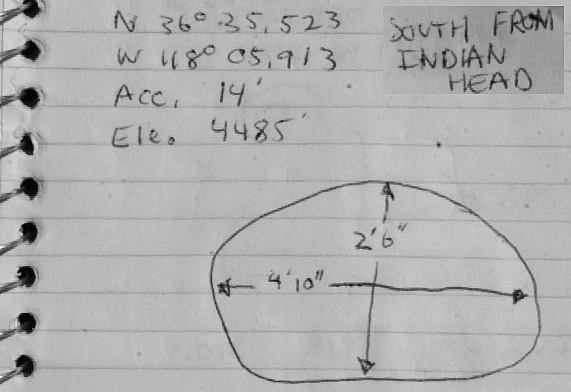 N 36° 35,523
W 118° 05,913
Acc. 14'
Ele. 4485'
SOUTH FROM
INDIAN
HEAD
2'6"
4'10"